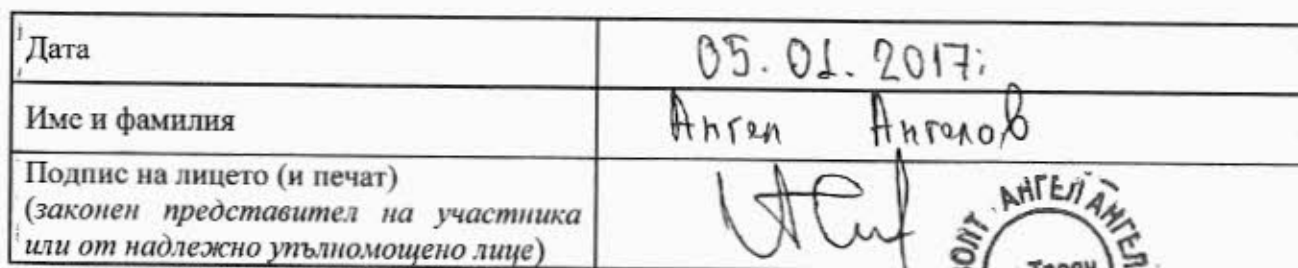 Дата 05.01.2017г
Име и фамилия Ангел Ангелов
Подпис на лицето (и печат)
(законен представител на участника
или от надлежно упълномощено лице)
АНГЕЛ